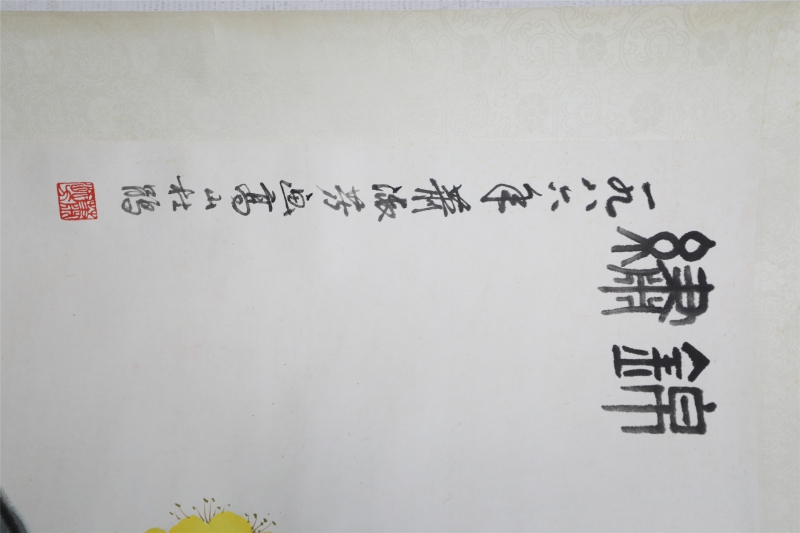 錦繡
一九八六年蕭淑芳寫高山杜鵑